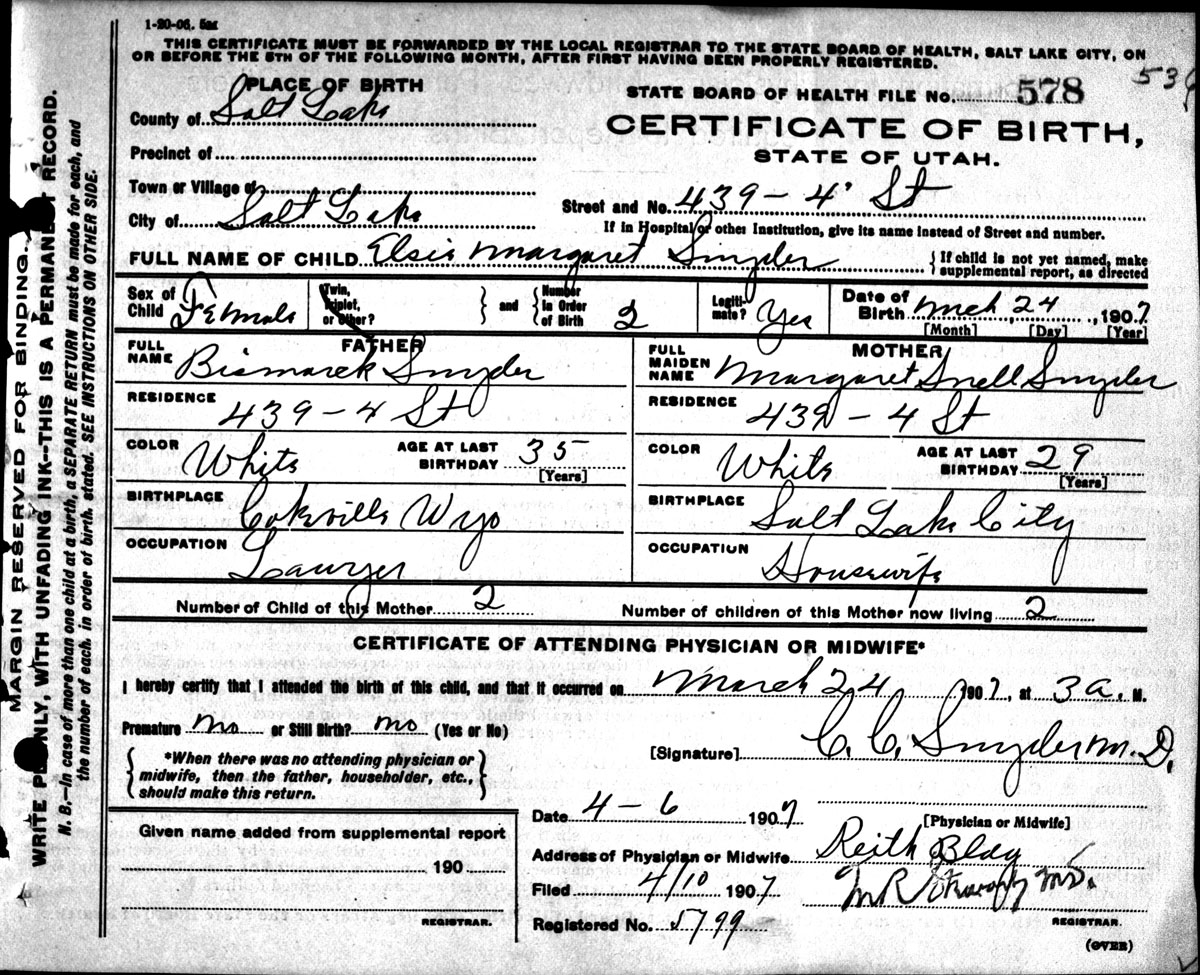 1-20-06. 5m
THIS CERTIFICATE MUST BE FORWARDED BY THE LOCAL REGISTRAR TO THE STATE BOARD OF HEALTH, SALT LAKE CITY, ON
OR BEFORE THE 5TH OF THE FOLLOWING MONTH, AFTER FIRST HAVING BEEN PROPERLY REGISTERED.
539
PLACE OF BIRTH
STATE BOARD OF HEALTH FILE No. 578
County of Salt Lake
CERTIFICATE OF BIRTH,
Precinct of
STATE OF UTAH.
Town or Village of
Street and No. 439 - 4' St
City of Salt Lake
If in Hospital or other Institution, give its name instead of Street and number.
FULL NAME OF CHILD Elsie Margaret Snyder
{ If child is not yet named, make
supplemental report, as directed
Sex of Child Female
Twin, Triplet, or Other?
and
Number in Order of Birth 2
Legitimate? Yes
Date of Birth Mch 24, 1907
[Month] [Day] [Year]
FATHER
FULL NAME Bismarck Snyder
RESIDENCE 439 - 4 St
COLOR White
AGE AT LAST BIRTHDAY 35
[Years]
BIRTHPLACE Cokville Wyo
OCCUPATION Lawyer
MOTHER
FULL MAIDEN NAME Margaret Snell Snyder
RESIDENCE 439 - 4 St
COLOR White
AGE AT LAST BIRTHDAY 29
[Years]
BIRTHPLACE Salt Lake City
OCCUPATION Housewife
Number of Child of this Mother 2
Number of children of this Mother now living 2
CERTIFICATE OF ATTENDING PHYSICIAN OR MIDWIFE*
I hereby certify that I attended the birth of this child, and that it occurred on March 24 1907, at 3 a. M.
Premature no or Still Birth? no (Yes or No)
[Signature] C. C. Snyder M. D.
{ *When there was no attending physician or
midwife, then the father, householder, etc.,
should make this return. }
Date 4 - 6 1907
[Physician or Midwife]
Given name added from supplemental report
190
REGISTRAR.
Address of Physician or Midwife Keith Bldg
Filed 4/10 1907
M R M.D.
Registered No. 5799
REGISTRAR.
(OVER)
MARGIN RESERVED FOR BINDING.
WRITE PLAINLY, WITH UNFADING INK--THIS IS A PERMANENT RECORD.
N. B.—In case of more than one child at a birth, a SEPARATE RETURN must be made for each, and
the number of each, in order of birth, stated. SEE INSTRUCTIONS ON OTHER SIDE.